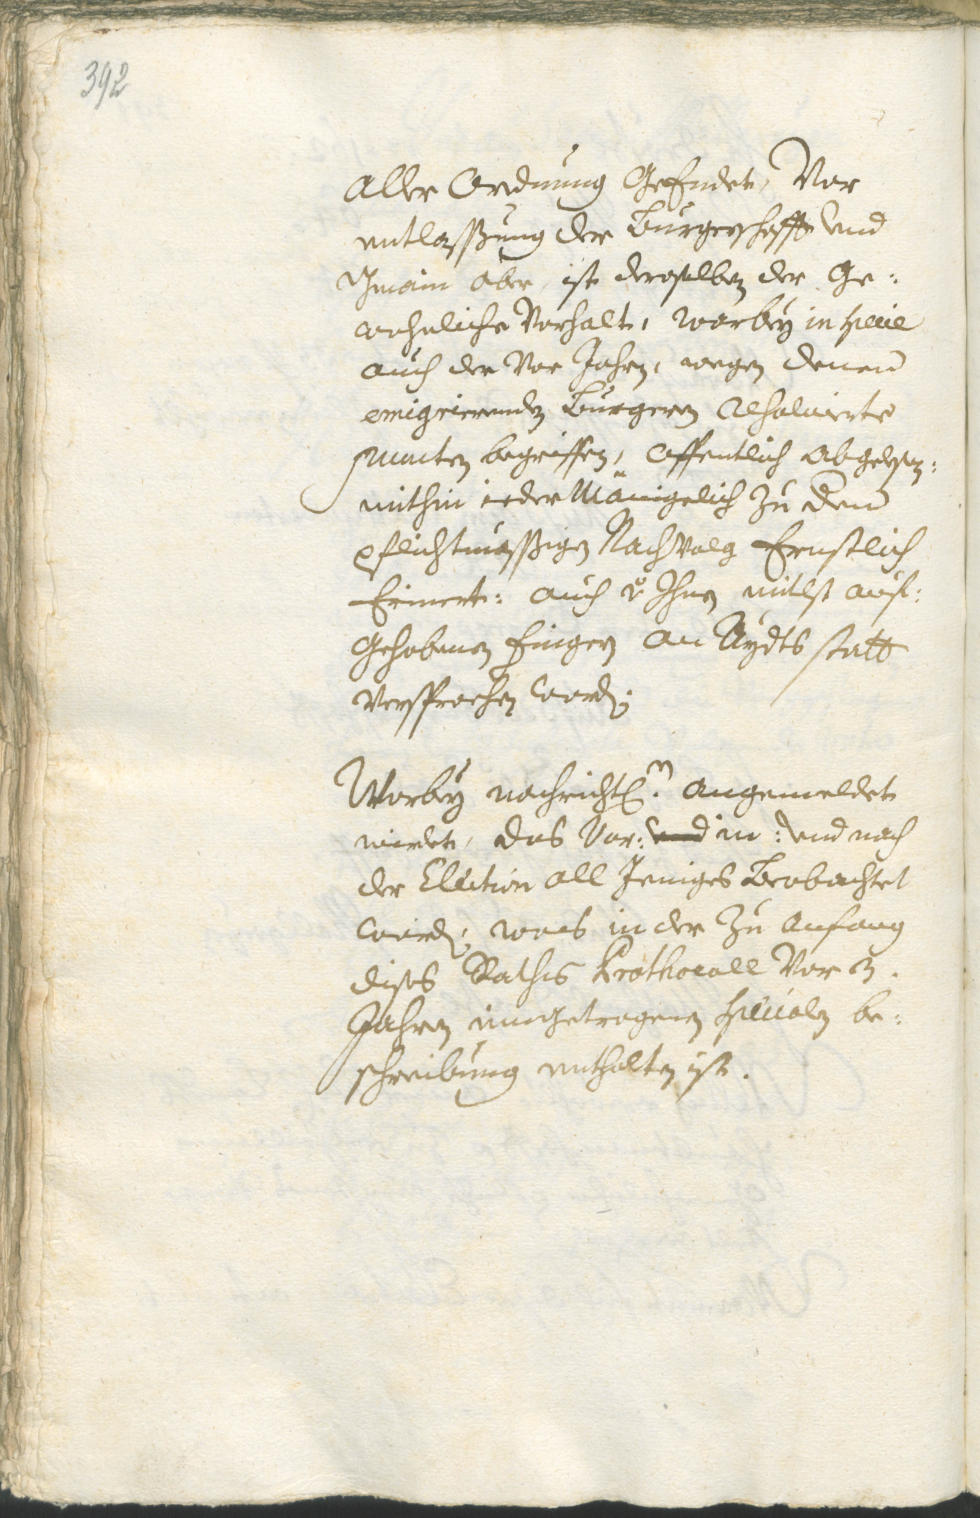 392
aller Ordnung Geendet, Vor
entlassung der Burgerschafft und
Gmain aber, ist derselben der Ge:
wohnliche Vorhalt, worbey in specie
auch der Vor Jahrn, wegen denen
emigrierenden Burgeren resolvierte
puncten begriffen, offentlich abgelesen:
mithin ieder Mänigelich zu dem
pflichtmässigen Nachvolg Ernstlich
Erinnert: auch Ihnen mitlst auf:
gehobenen fingern an Aydts statt
Versprochen word:
Worbey nachrichtl: angemeldet
wirdet, das Vor: und in: und nach
der Election all Jeniges Beobachtet
word: was in der zu anfang
dises Raths Prothocoll Vor 3.
Jahren eingetragenen specialn be:
schreibung enthalten ist.